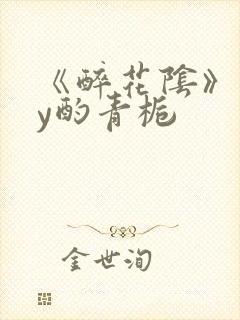 《醉花陰》
y酌青栀
金世洵